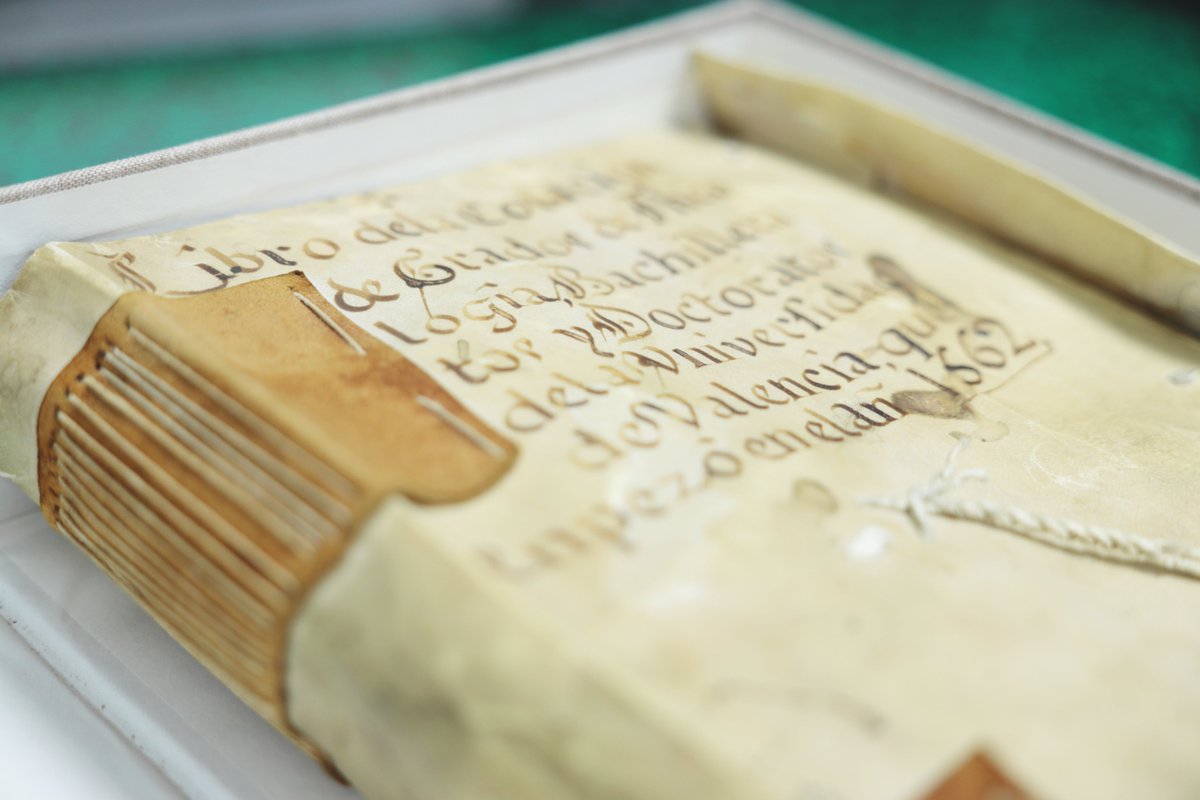 Libro dela
de Grados de
logia, Bachillera
tos y Doctoratos
dela Vniverſidad
de Valencia, que
Empezó enel añ 1562